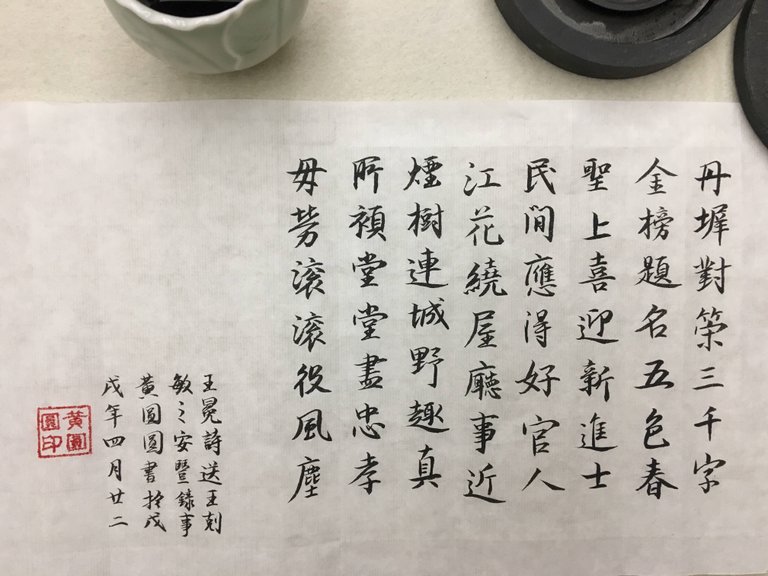 丹墀對策三千字
金榜題名五色春
聖上喜迎新進士
民間應得好官人
江花繞屋廳事近
煙樹連城野趣真
所願堂堂盡忠孝
毋勞滾滾役風塵
王冕詩送王剋
敏之安豐錄事
黃圓圓書於戊
戌年四月廿二
黃圓
圓印